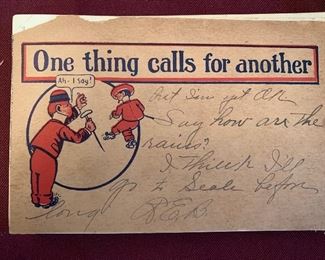 One thing calls for another
Ah - I Say!
But I'm yet OK
Say how are the
rains?
I think I'll
go to Seale before
long R.E.B.